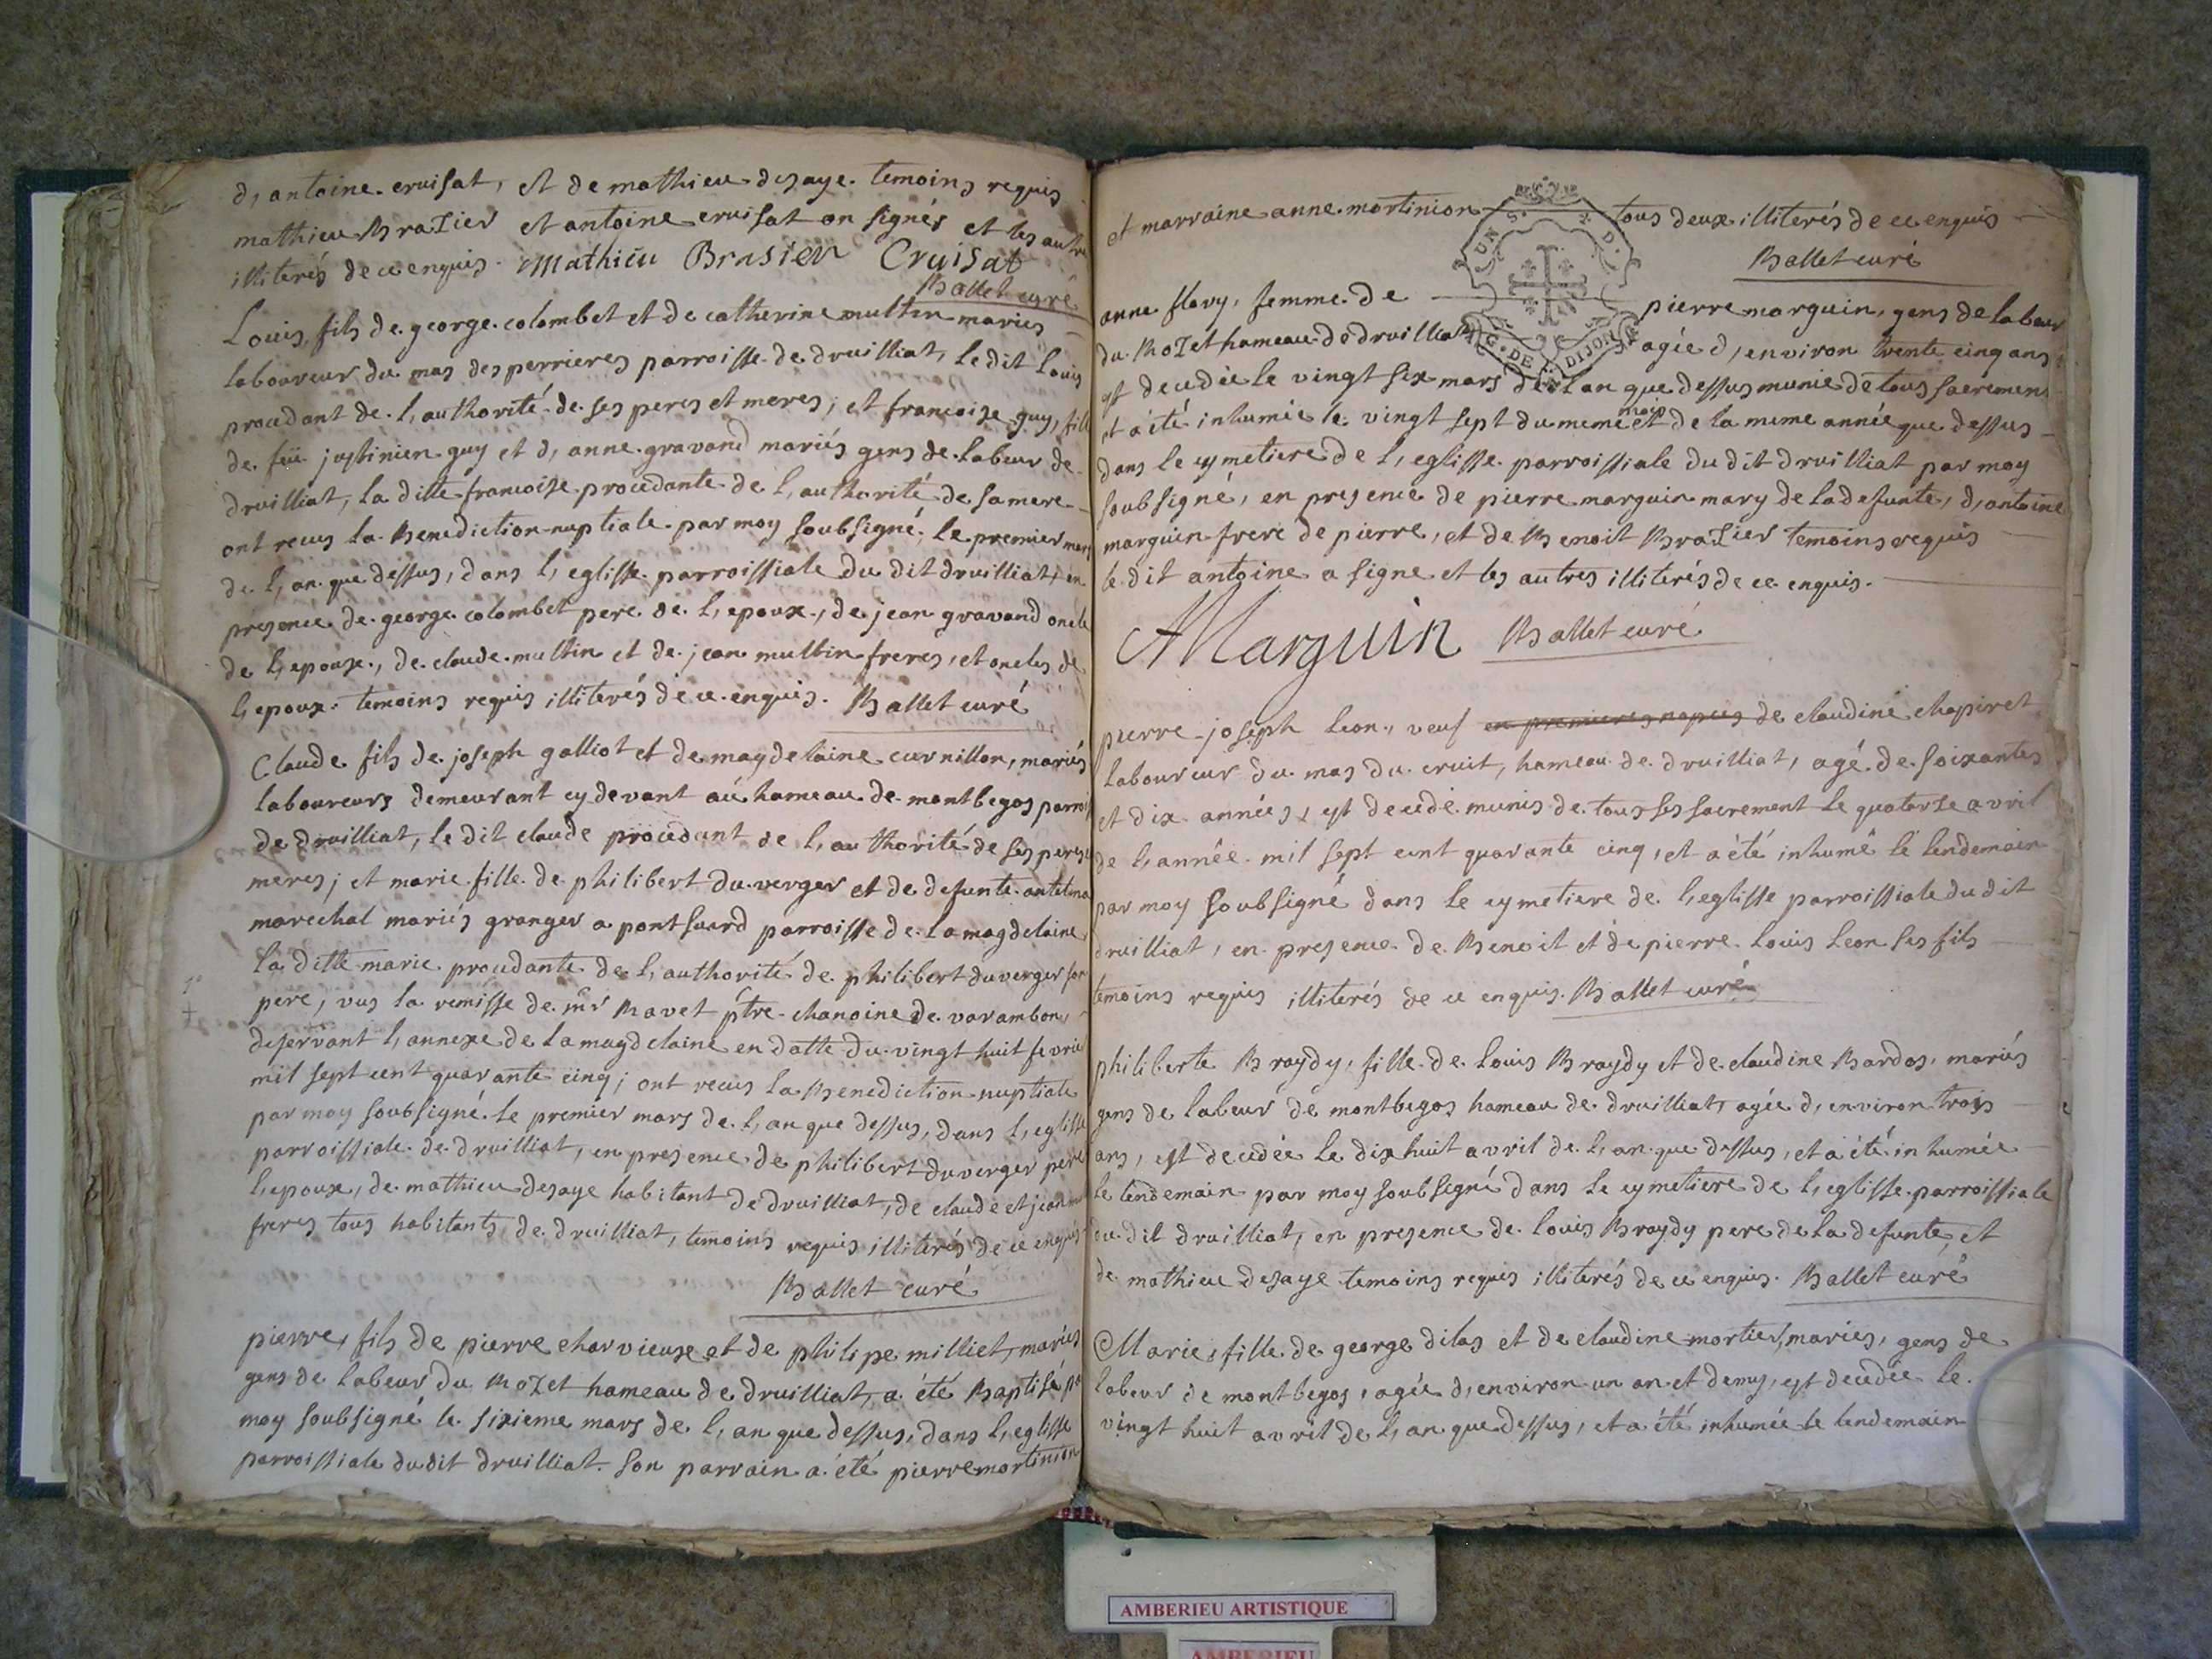 d, antoine cruisat, et de mathieu desaye temoins requis
mathieu Brazier et antoine cruisat on signés et les autre
illiterés de ce enquis. Mathieu Brasier Cruisat
Ballet curé
Louis, fils de george colombet et de catherine multin mariés
laboureur du mas des perrieres parroisse de druilliat, le dit Louis
procedant de l, authorité de ses peres et meres; et francoise guy, fille
de feü justinien guy et d, anne gravand mariés gens de labeur de
druilliat, la ditte francoise procedante de l, authorité de sa mere
ont recus la Benediction nuptiale par moy soubsigné, le premier mars
de l, an que dessus, dans l, eglisse parroissiale du dit druilliat, en
presence de george colombet pere de l, epoux, de jean gravand oncle
de l, epouse, de claude multin et de jean multin freres, et oncles de
l, epoux temoins requis illiterés de ce enquis. Ballet curé
Claude fils de joseph galliot et de magdelaine curnillon, mariés
laboureurs demeurant cy devant aú hameau de montbegos parroi
de druilliat, le dit claude procedant de l, authorité de ses peres
meres; et marie fille de philibert du verger et de defunte
marechal mariés granger a pont suard parroisse de la magdelaine
la ditte marie procedante de l, authorité de philibert duverger son
pere, vus la remisse de mr Ravet ptre chanoine de varambon,
deservant l, annexe de la magdelaine en datte du vingt huit fevrie
mil sept cent quarante cinq; ont recus la Benediction nuptiale
par moy soubsigné le premier mars de l, an que dessus, dans l, eglisse
parroissiale de druilliat, en presence de philibert duverger pere
l, epouse, de mathieu desaye habitant de druilliat, de claude et jean
freres tous habitants de druilliat, temoins requis illiterés de ce enquis
Ballet curé
pierre, fils de pierre charvieux et de philipe milliet, mariés
gens de labeur du Rozet hameau de druilliat, a été Baptisé pr
moy soubsigné le sixieme mars de l, an que dessus, dans l, eglisse
parroissiale du dit druilliat. Son parrain a été pierre martinion
et marraine anne martinion tous deux illiterés de ce enquis
Ballet curé
UN S. 2. D.
G. DE DIJON
anne flavy, femme de pierre marguin, gens de labeur
du Rozet hameau de druilliat agée d, environ trente cinq ans
est decedée le vingt six mars de l an que dessus munie de tous sacremens
et a été inhumée le vingt sept du meme mois et de la meme année que dessus
dans le cymetiere de l, eglisse parroissiale du dit druilliat par moy
soubsigné, en presence de pierre marguin mary de la defunte, d, antoine
marguin frere de pierre, et de Benoit Brazier temoins requis
le dit antoine a signe et les autres illiterés de ce enquis.
AMarguin Ballet curé
pierre joseph Leon, veuf en premieres nopces de claudine chapiret
laboureur du mas du cruit, hameau de druilliat, agé de soixantes
et dix années, est decedé munis de tous ses sacrement le quatorze avril
de l, année mil sept cent quarante cinq, et a été inhumé le lendemain
par moy soubsigné dans le cymetiere de l, eglisse parroissiale du dit
druilliat, en presence de Benoit et de pierre Louis Leon ses fils
temoins requis illiterés de ce enquis. Ballet curé
philiberte Braydy, fille de Louis Braydy et de claudine Bardos, mariés
gens de labeur de montbegos hameau de druilliat, agée d, environ trois
ans, est decedée le dix huit avril de l, an que dessus, et a été inhumée
le lendemain par moy soubsigné dans le cymetiere de l, eglisse parroissiale
du dit druilliat, en presence de louis Braydy pere de la defunte, et
de mathieu desaye temoins requis illiterés de ce enquis. Ballet curé
Marie, fille de george dilas et de claudine mortier, mariés, gens de
labeur de montbegos, agée d, environ un an et demy, est decedée le
vingt huit avril de l, an que dessus, et a été inhumée le lendemain
AMBERIEU ARTISTIQUE
AMBERIEU